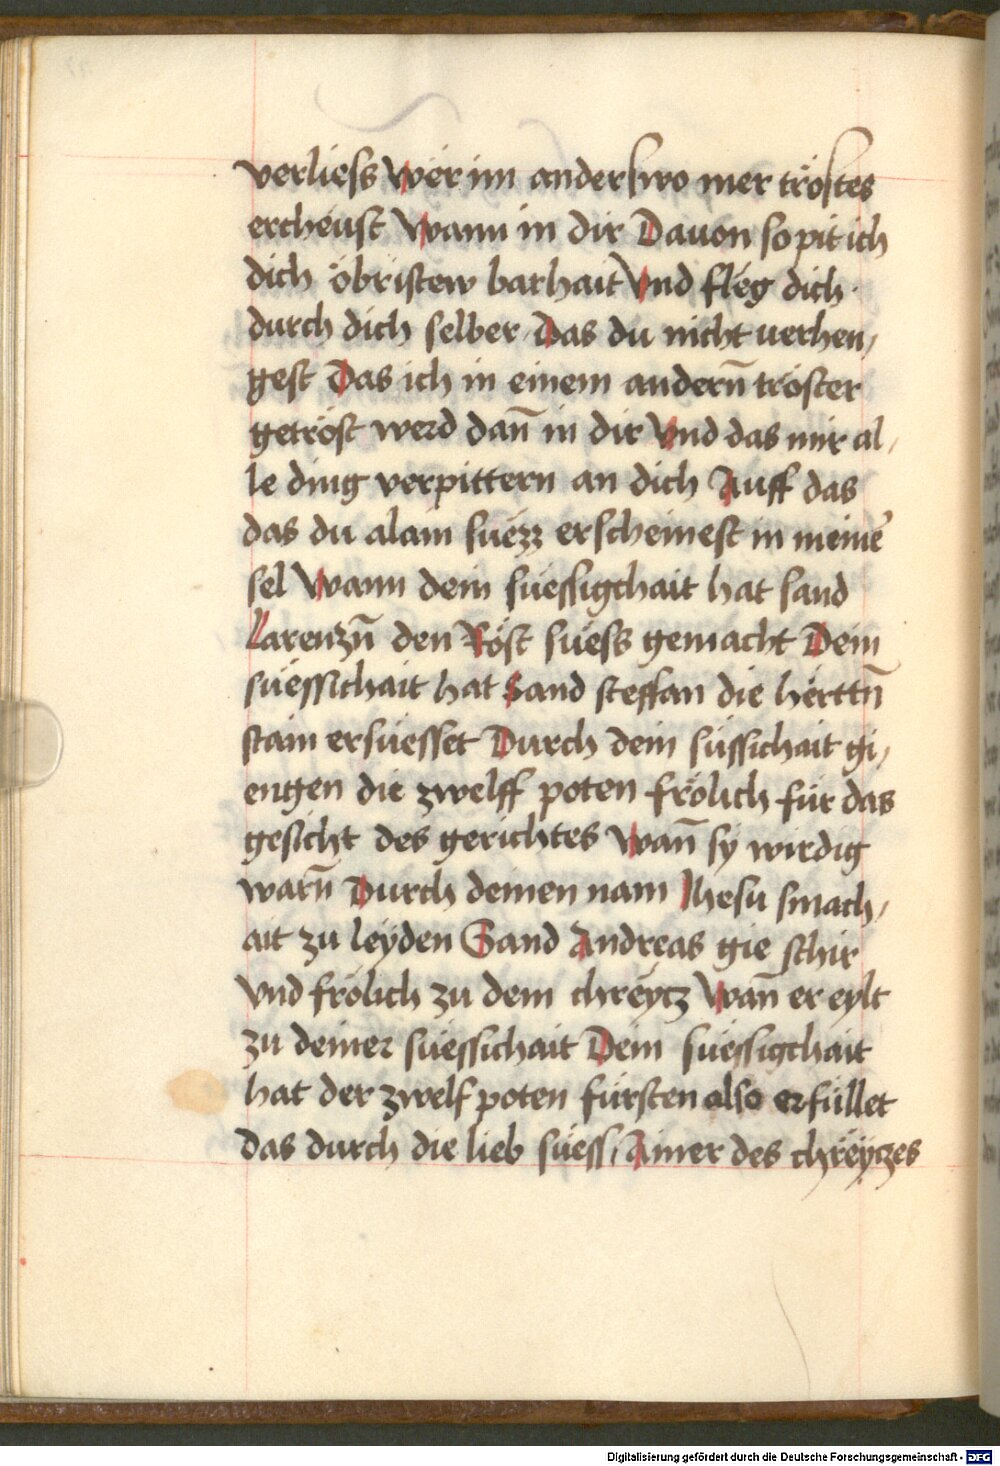 verliess Wër im anderswo mer tröstes
ercheust Wann in dir Dauon so pit ich
dich öbristew barhait Vnd fleg dich
durch dich selber Das du nicht uerhen,
gest Das ich in einem andern̄ tröster
getröst werd dan̄ in dir Vnd das mir al,
le ding verpittern an dich Auff das
das du alain suëzz erscheinest in meine᷑
sel Wann dein suëssigchait hat sand
Larenzn̄ den Röst suëss gemacht Dein
suëssichait hat Sand steffan die hërttn̄
stain ersuësset Durch dein süssichait gi,
engen die zwelff poten frölich für das
gesicht des gerichtes Wan̄ sy wirdig
warn̄ Durch deinen nam Jhesu smach,
ait zu leyden Sand Andreas gie schir
Vnd frölich zu dem chrëytz Wan̄ er eylt
zu deiner suëssichait Dein suëssigchait
hat der zwelf poten fürsten also erfüllet
das durch die lieb suëss, Ainer des chrëytzes
Digitalisierung gefördert durch die Deutsche Forschungsgemeinschaft - DFG